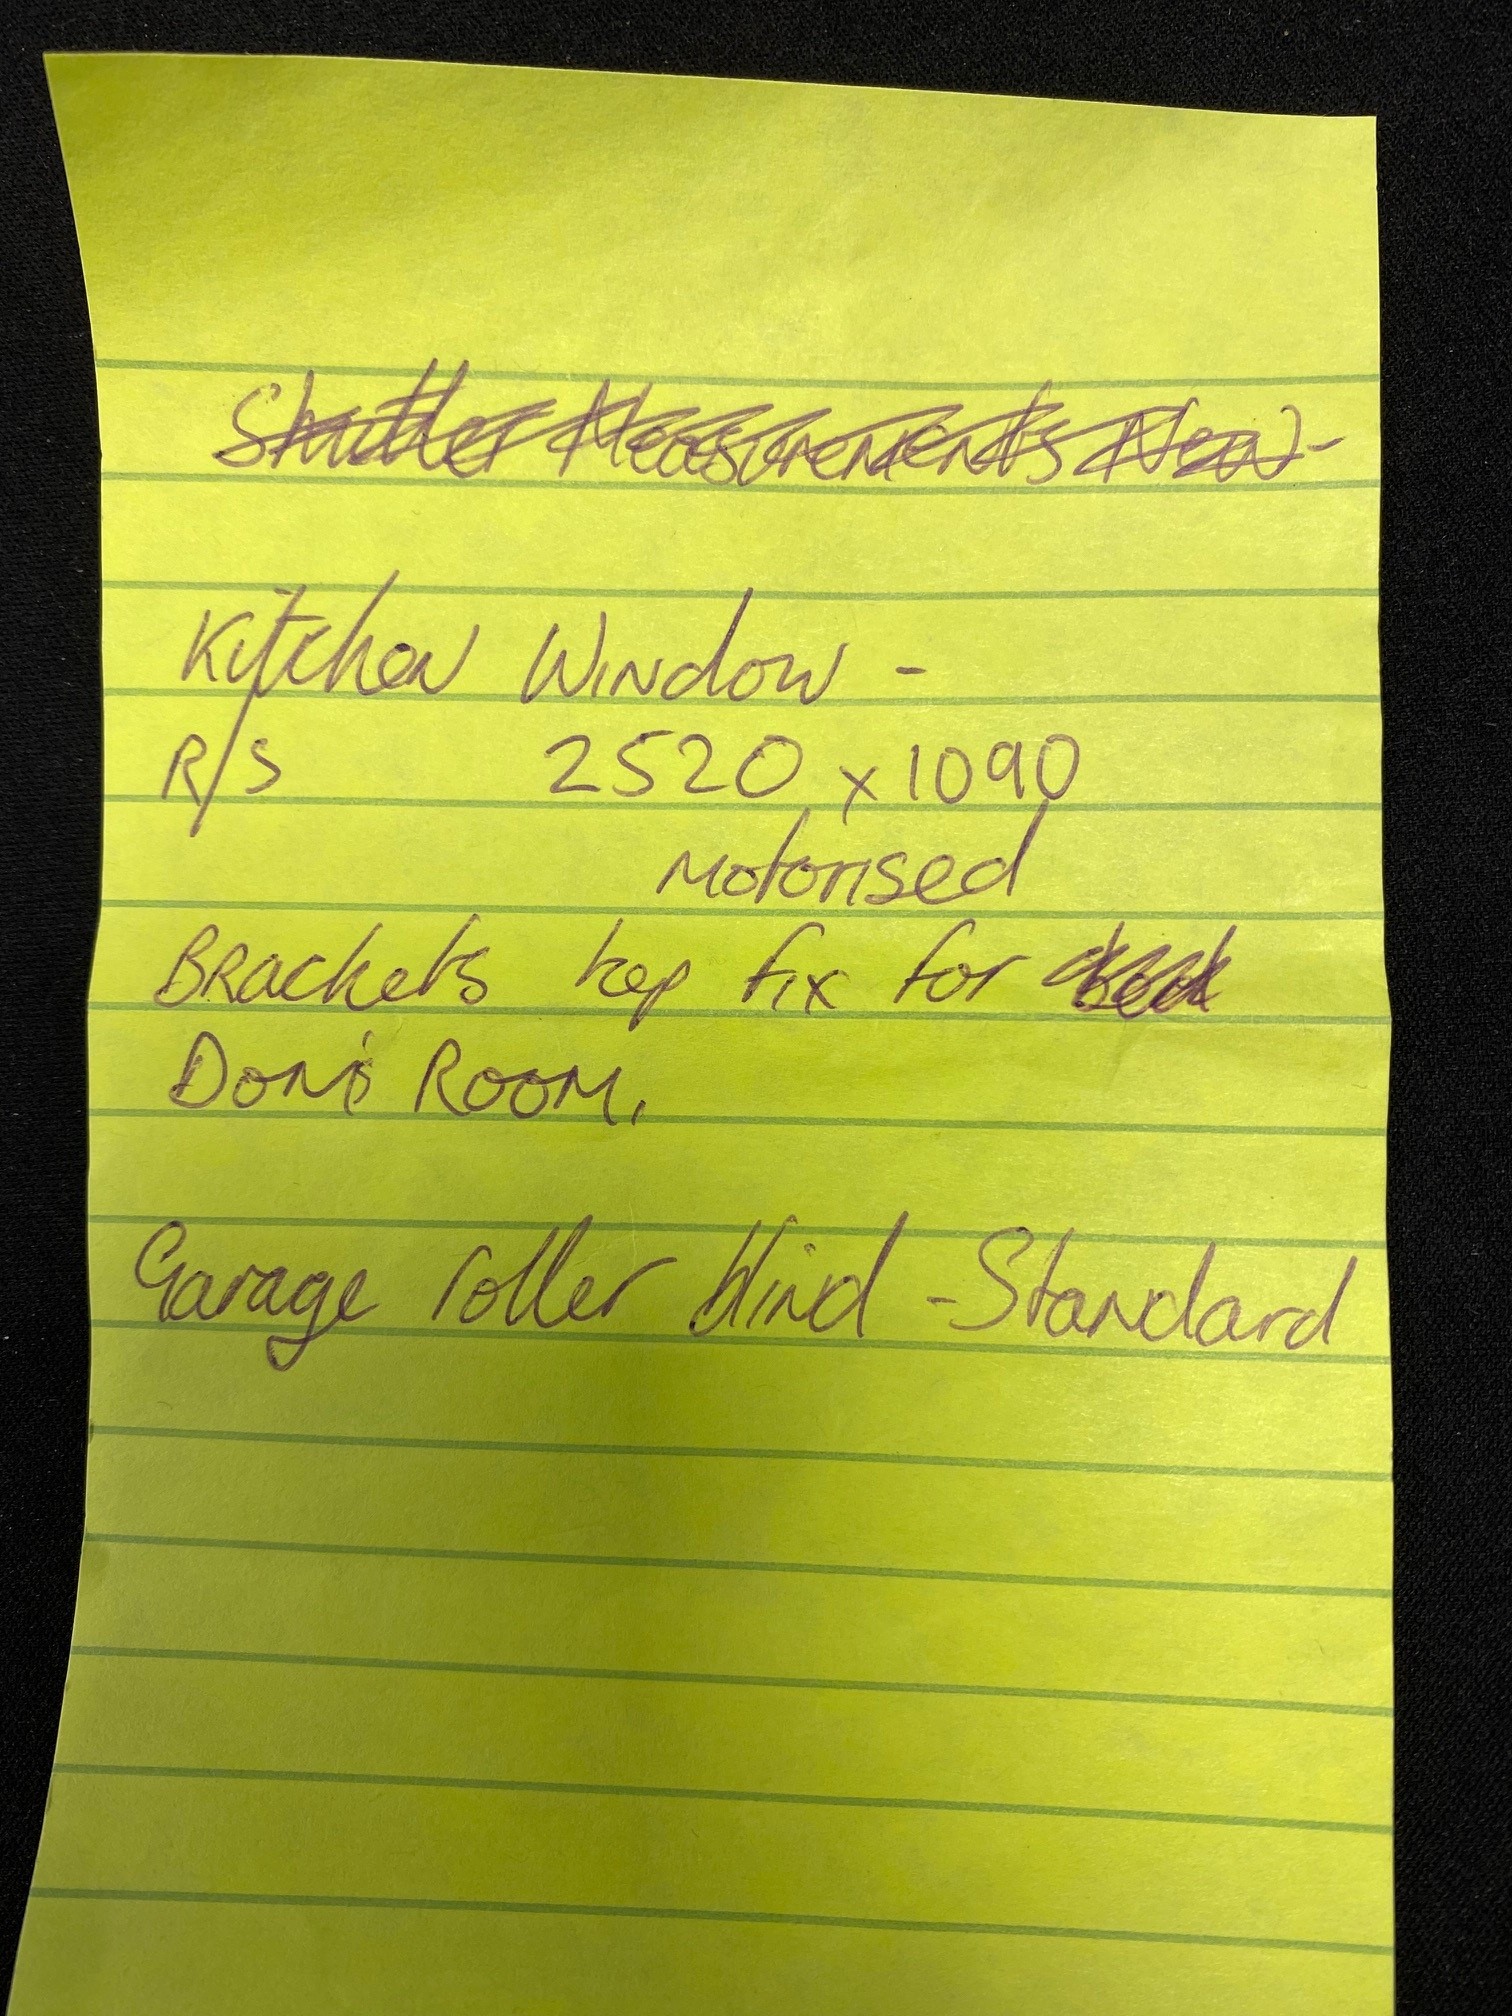 Shutter Measurements New -
Kitchen Window -
R/S 2520 x 1090
Motorised
Brackets top fix for
Dom's Room.
Garage roller blind - Standard